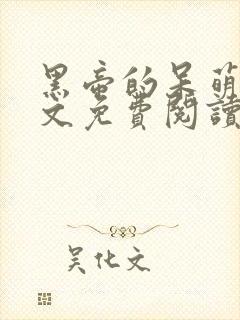 黑帝的呆萌
文免費閱讀
吴化文